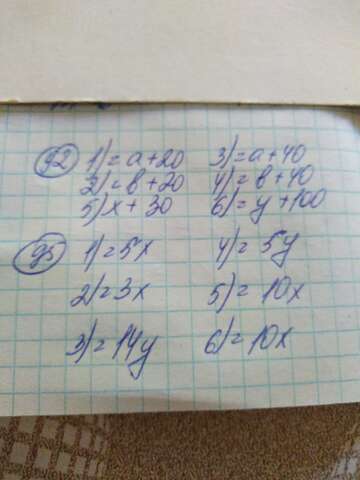 92 1) = a + 20 3) = a + 40
2) = b + 20 4) = b + 40
5) x + 30 6) = y + 100
95 1) = 5x 4) = 5y
2) = 3x 5) = 10x
3) = 14y 6) = 10x